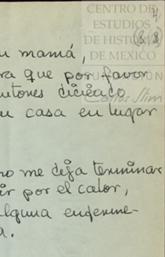 CENTRO DE
ESTUDIOS
DE HISTORIA
DE MÉXICO
u mamá,
ra que por favor
Carlos Slim
u casa en lugar
no me deja terminar
ir por el calor,
alguna enferme-
a.